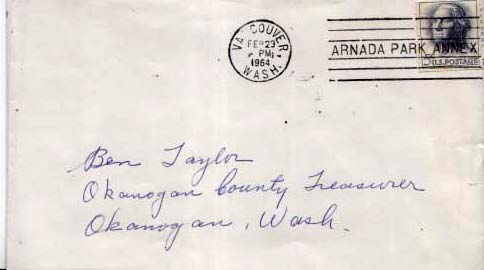 VANCOUVER
FEB 23
PM
1964
WASH.
ARNADA PARK ANNEX
U.S. POSTAGE
Ben Taylor
Okanogan County Treasurer
Okanogan, Wash.